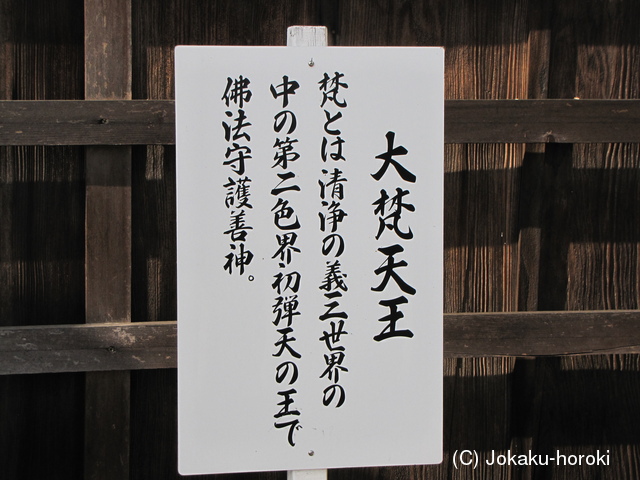 大梵天王
梵とは清浄の義三世界の
中の第二色界初弾天の王で
佛法守護善神。
(C) Jokaku-horoki